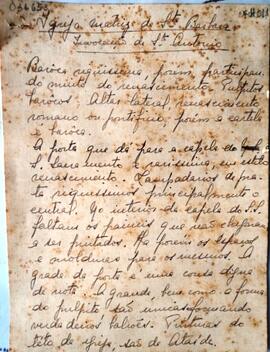 036653
A Igreja Matriz de Sta Barbara
Invocação de Sto Antonio
Barôco riquissimo, porem, participan-
do muito do renascimento. Pulpitos
barôcos. Altar lateral, renascimento
romano ou pontificio, porem e cartela
e barôco.
A porta que dá para a capela do
S. Sacramento é rarissima, em estilo
renascimento. Lampadarios de pra-
ta riquissimos principalmente o
central. No interior da capela do S.S.
faltam os paineis que não chegaram
a ser pintados. Ha porem os espaços
e molduras para os mesmos. A
grade da porta é uma cousa digna
de nota. A grande bem como a forma
de pulpito são unicas formando
verdadeiros balcões. Pinturas do
této da Igreja são de Ataíde.